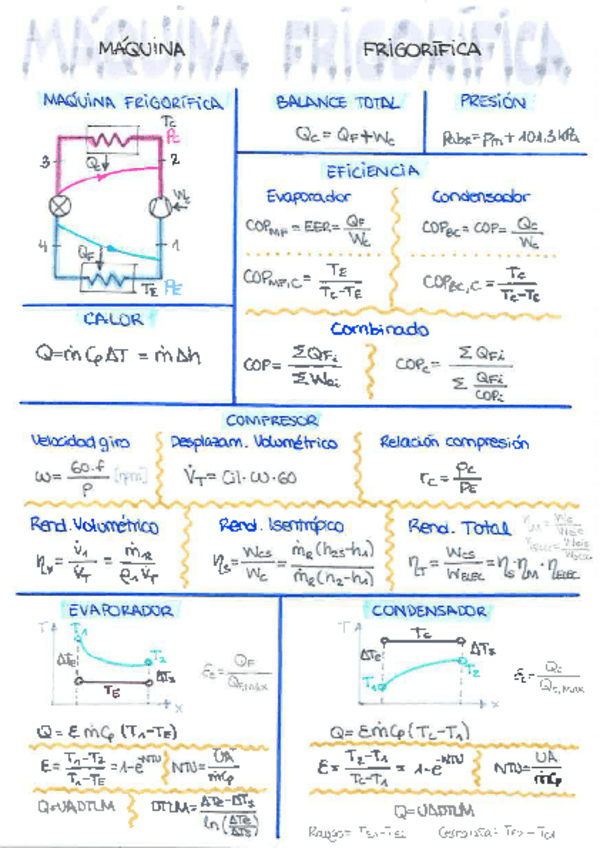 MÁQUINA FRIGORÍFICA
MAQUINA FRIGORÍFICA
Tc
Pc
3
2
Qc
Wc
4
1
QF
TE PE
BALANCE TOTAL
Qc = QF + Wc
PRESIÓN
Pabs = Pm + 101.3 kPa
EFICIENCIA
Evaporador
COPMF = EER = QF / Wc
COPMF,C = TE / Tc-TE
Condensador
COPBC = COP = Qc / Wc
COPBC,C = Tc / Tc-TE
Combinado
COP = ΣQFi / ΣWci
COPc = ΣQFi / Σ QFi/COPi
CALOR
Q = ṁ Cp ΔT = ṁ Δh
COMPRESOR
Velocidad giro
ω = 60·f / P [rpm]
Desplazam. Volumétrico
V̇T = Cil · ω · 60
Relación compresión
rc = Pc / PE
Rend. Volumétrico
ηv = V̇1 / V̇T = ṁR / ρ1 V̇T
Rend. Isentrópico
ηs = Wcs / Wc = ṁR (h2s-h1) / ṁR (h2-h1)
Rend. Total
ηT = Wcs / WELEC = ηs · ηM · ηELEC
EVAPORADOR
T
T1
ΔTE
T2
ΔTs
TE
x
εE = QF / QF,MAX
Q = ε ṁCp (T1-TE)
ε = T1-T2 / T1-TE = 1-e^-NTU
NTU = UA / ṁCp
Q = UADTLM
DTLM = ΔTE-ΔTs / ln(ΔTE/ΔTs)
CONDENSADOR
T
Tc
ΔTE
ΔTs
T1
T2
x
εc = Qc / Qc,MAX
Q = ε ṁCp (Tc-T1)
ε = T2-T1 / Tc-T1 = 1-e^-NTU
NTU = UA / ṁCp
Q = UADTLM